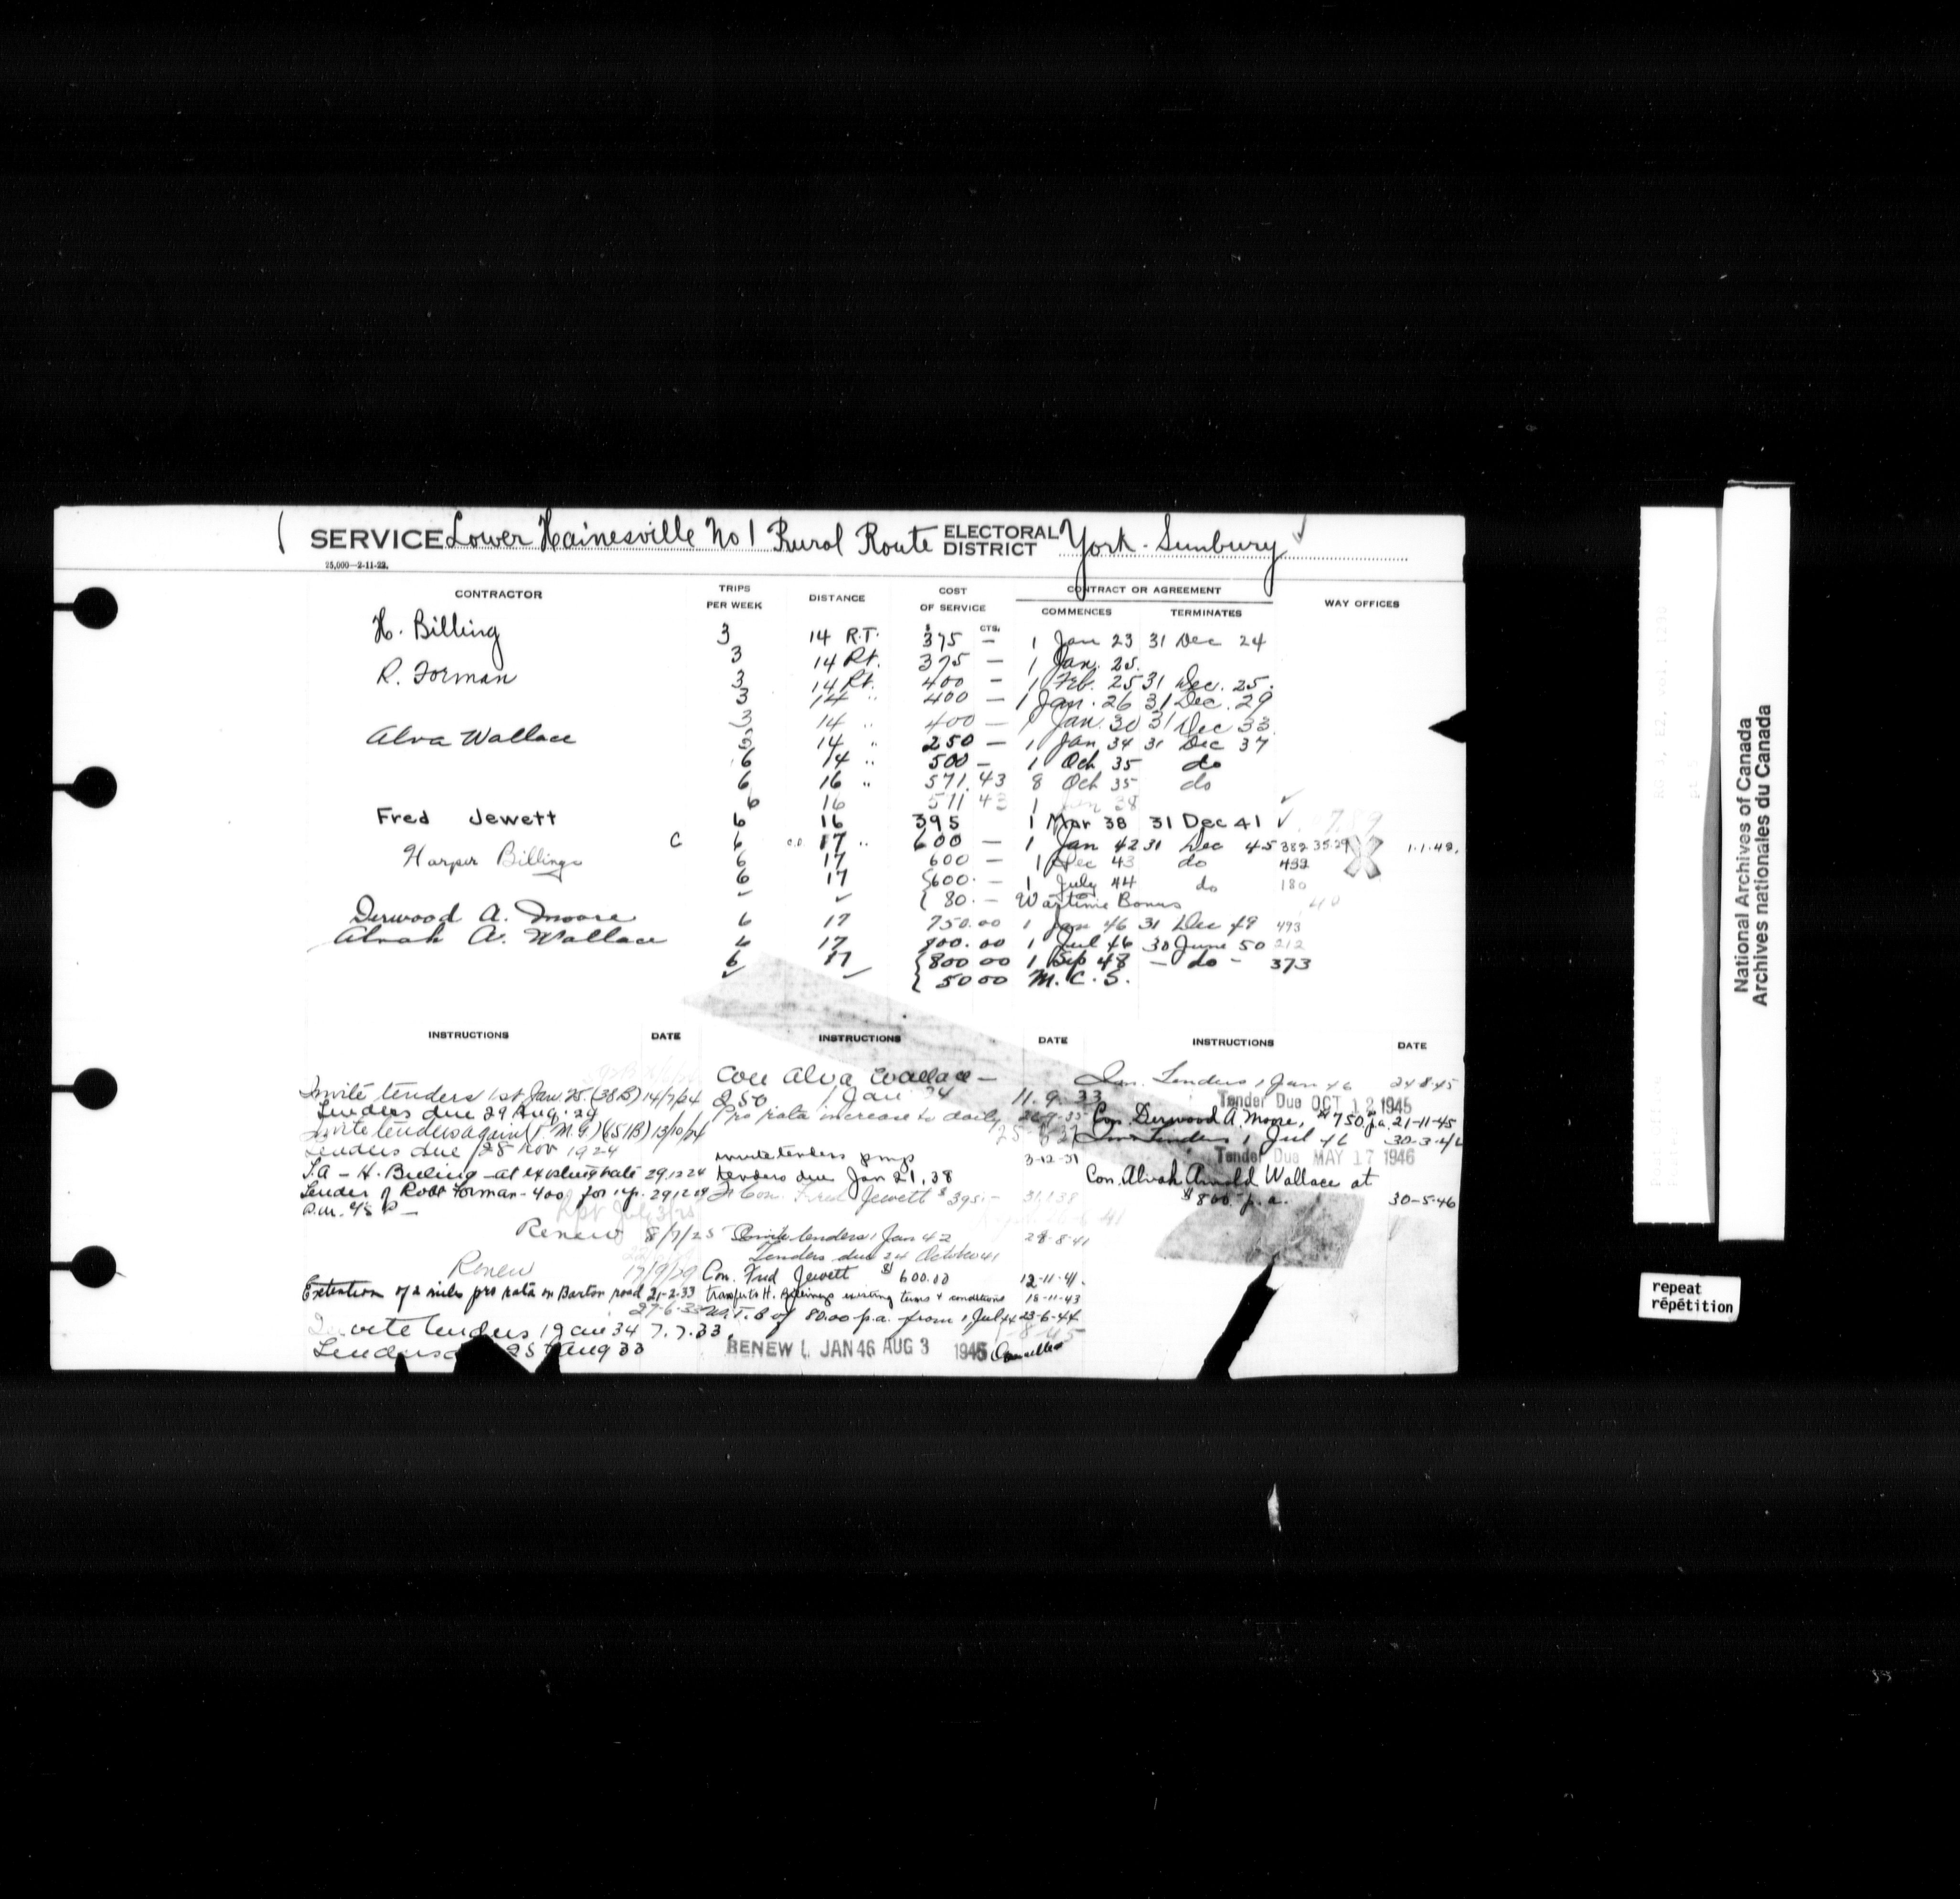 SERVICE Lower Hainesville No 1 Rural Route ELECTORAL DISTRICT York-Sunbury
25,000—2-11-22.
CONTRACTOR TRIPS PER WEEK DISTANCE COST OF SERVICE CONTRACT OR AGREEMENT WAY OFFICES
COMMENCES TERMINATES
$ CTS.
H. Billing 3 14 R.T. 375 — 1 Jan 23 31 Dec 24
3 14 Rt. 375 — 1 Jan. 25.
R. Forman 3 14 Rt. 400 — 1 Feb. 25 31 Dec. 25.
3 14 " 400 — 1 Jan. 26 31 Dec. 29
3 14 " 400 — 1 Jan. 30 31 Dec 33.
Alva Wallace 3 14 " 250 — 1 Jan 34 31 Dec 37
6 14 " 500 — 1 Oct 35 do
6 16 " 571.43 8 Oct 35 do
6 16 571 43 1 Jan 38
Fred Jewett 6 16 395 1 Mar 38 31 Dec 41 ✓
C 6 17 " 600 — 1 Jan 42 31 Dec 45 382 35.29 1.1.42.
Harper Billings 6 17 600 — 1 Dec 43 do 432
6 17 {600. — 1 July 44 do 180
✓ ✓ { 80. — Wartime Bonus
Derwood A. Moore 6 17 750.00 1 Jan 46 31 Dec 49 493
Alvah A. Wallace 6 17 800.00 1 Jul 46 30 June 50 212
6 17 {800 00 1 Sep 48 — do — 373
✓ ✓ { 50 00 M.C.S.
INSTRUCTIONS DATE INSTRUCTIONS DATE INSTRUCTIONS DATE
Invite tenders 1st Jan 25. (38B) 14/7/24
Tenders due 29 Aug. 24
Invite tenders again (P.M.G) (51B) 13/10/24
Tenders due 28 Nov 1924
T.A — H. Billing — at existing rate 29.12 24
Tender of Robt Forman — 400 for 1 yr. 29 12 24
Rpt July 3/25
Renew 8/7/25
Renew 17/9/29
Extention of 2 miles pro rata on Barton road 21-2-33
27-6-33
Invite tenders 1 Jan 34 7.7.33.
Tenders 25 Aug 33
Con Alva Wallace —
250 1 Jan 34 11.9.33
Pro rata increase to daily
invite tenders pmp 3-12-37
tenders due Jan 21, 38
Con. Fred Jewett $395.— 31.1.38
Invite tenders 1 Jan 42 28-8-41
Tenders due 24 October 41
Con. Fred Jewett $600.00 12-11-41.
transfer to H. Billings existing terms & conditions 18-11-43
W.T.B of 80.00 p.a. from 1 July 44 23-6-44
RENEW 1 JAN 46 AUG 3 1945 Cancelled
Inv. Tenders 1 Jan 46 24-8-45
Tender Due OCT 12 1945
Con. Derwood A. Moore, $750 p.a. 21-11-45
Inv Tenders 1 Jul 46 30-3-46
Tender Due MAY 17 1946
Con. Alvah Arnold Wallace at
$800 p.a. 30-5-46
National Archives of Canada
Archives nationales du Canada
repeat
répétition